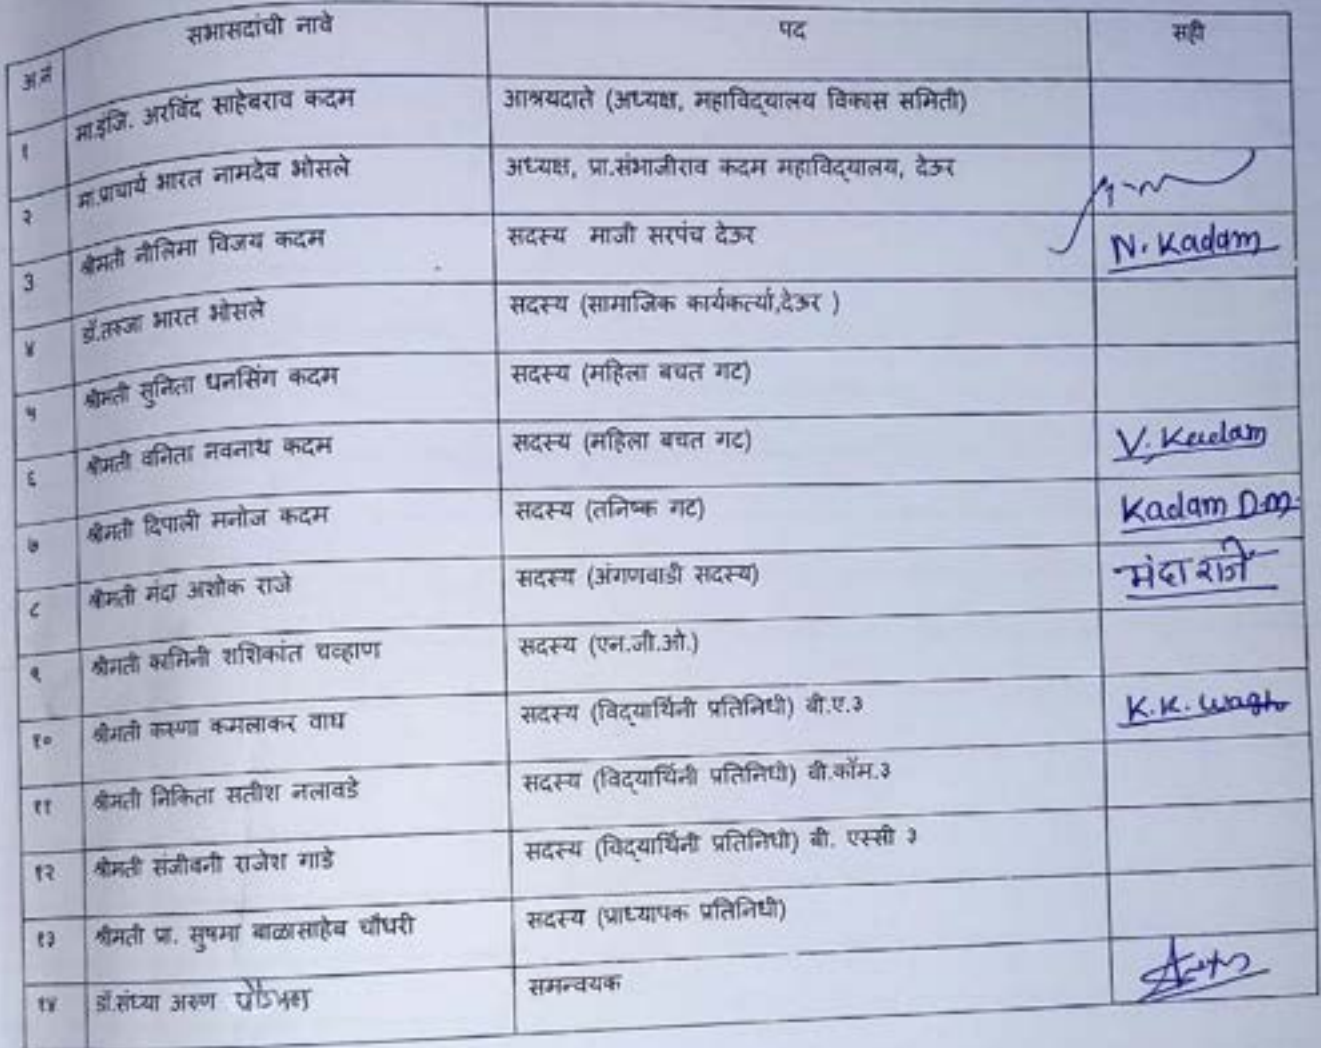 अ.नं सभासदांची नावे पद सही
१ मा.इंजि. अरविंद साहेबराव कदम आश्रयदाते (अध्यक्ष, महाविद्यालय विकास समिती)
२ मा.प्राचार्य भारत नामदेव भोसले अध्यक्ष, प्रा.संभाजीराव कदम महाविद्यालय, देऊर
3 श्रीमती नीलिमा विजय कदम सदस्य माजी सरपंच देऊर N. Kadam
४ डॉ.तरुजा भारत भोसले सदस्य (सामाजिक कार्यकर्त्या,देऊर )
५ श्रीमती सुनिता धनसिंग कदम सदस्य (महिला बचत गट)
६ श्रीमती वनिता नवनाथ कदम सदस्य (महिला बचत गट) V. Kadam
७ श्रीमती दिपाली मनोज कदम सदस्य (तनिष्क गट) Kadam D.M.
८ श्रीमती मंदा अशोक राजे सदस्य (अंगणवाडी सदस्य) मंदा राजे
९ श्रीमती कामिनी शशिकांत चव्हाण सदस्य (एन.जी.ओ.)
१० श्रीमती करुणा कमलाकर वाघ सदस्य (विद्यार्थिनी प्रतिनिधी) बी.ए.३ K.K. Wagh
११ श्रीमती निकिता सतीश नलावडे सदस्य (विद्यार्थिनी प्रतिनिधी) बी.कॉम.३
१२ श्रीमती संजीवनी राजेश गाडे सदस्य (विद्यार्थिनी प्रतिनिधी) बी. एस्सी ३
१३ श्रीमती प्रा. सुषमा बाळासाहेब चौधरी सदस्य (प्राध्यापक प्रतिनिधी)
१४ डॉ.संध्या अरुण समन्वयक